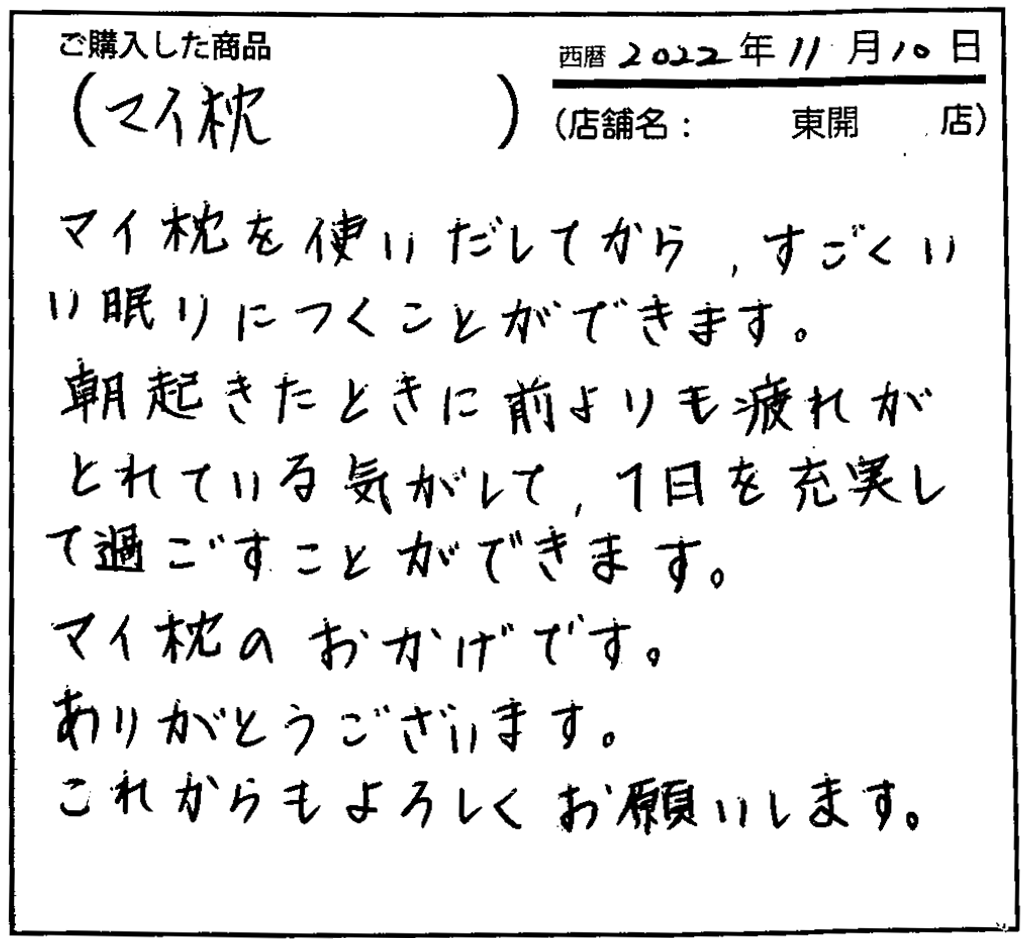 ご購入した商品
西暦 2022年11月10日
(マイ枕)
(店舗名： 東開 店)
マイ枕を使いだしてから、すごくい
い眠りにつくことができます。
朝起きたときに前よりも疲れが
とれている気がして、1日を充実し
て過ごすことができます。
マイ枕のおかげです。
ありがとうございます。
これからもよろしくお願いします。